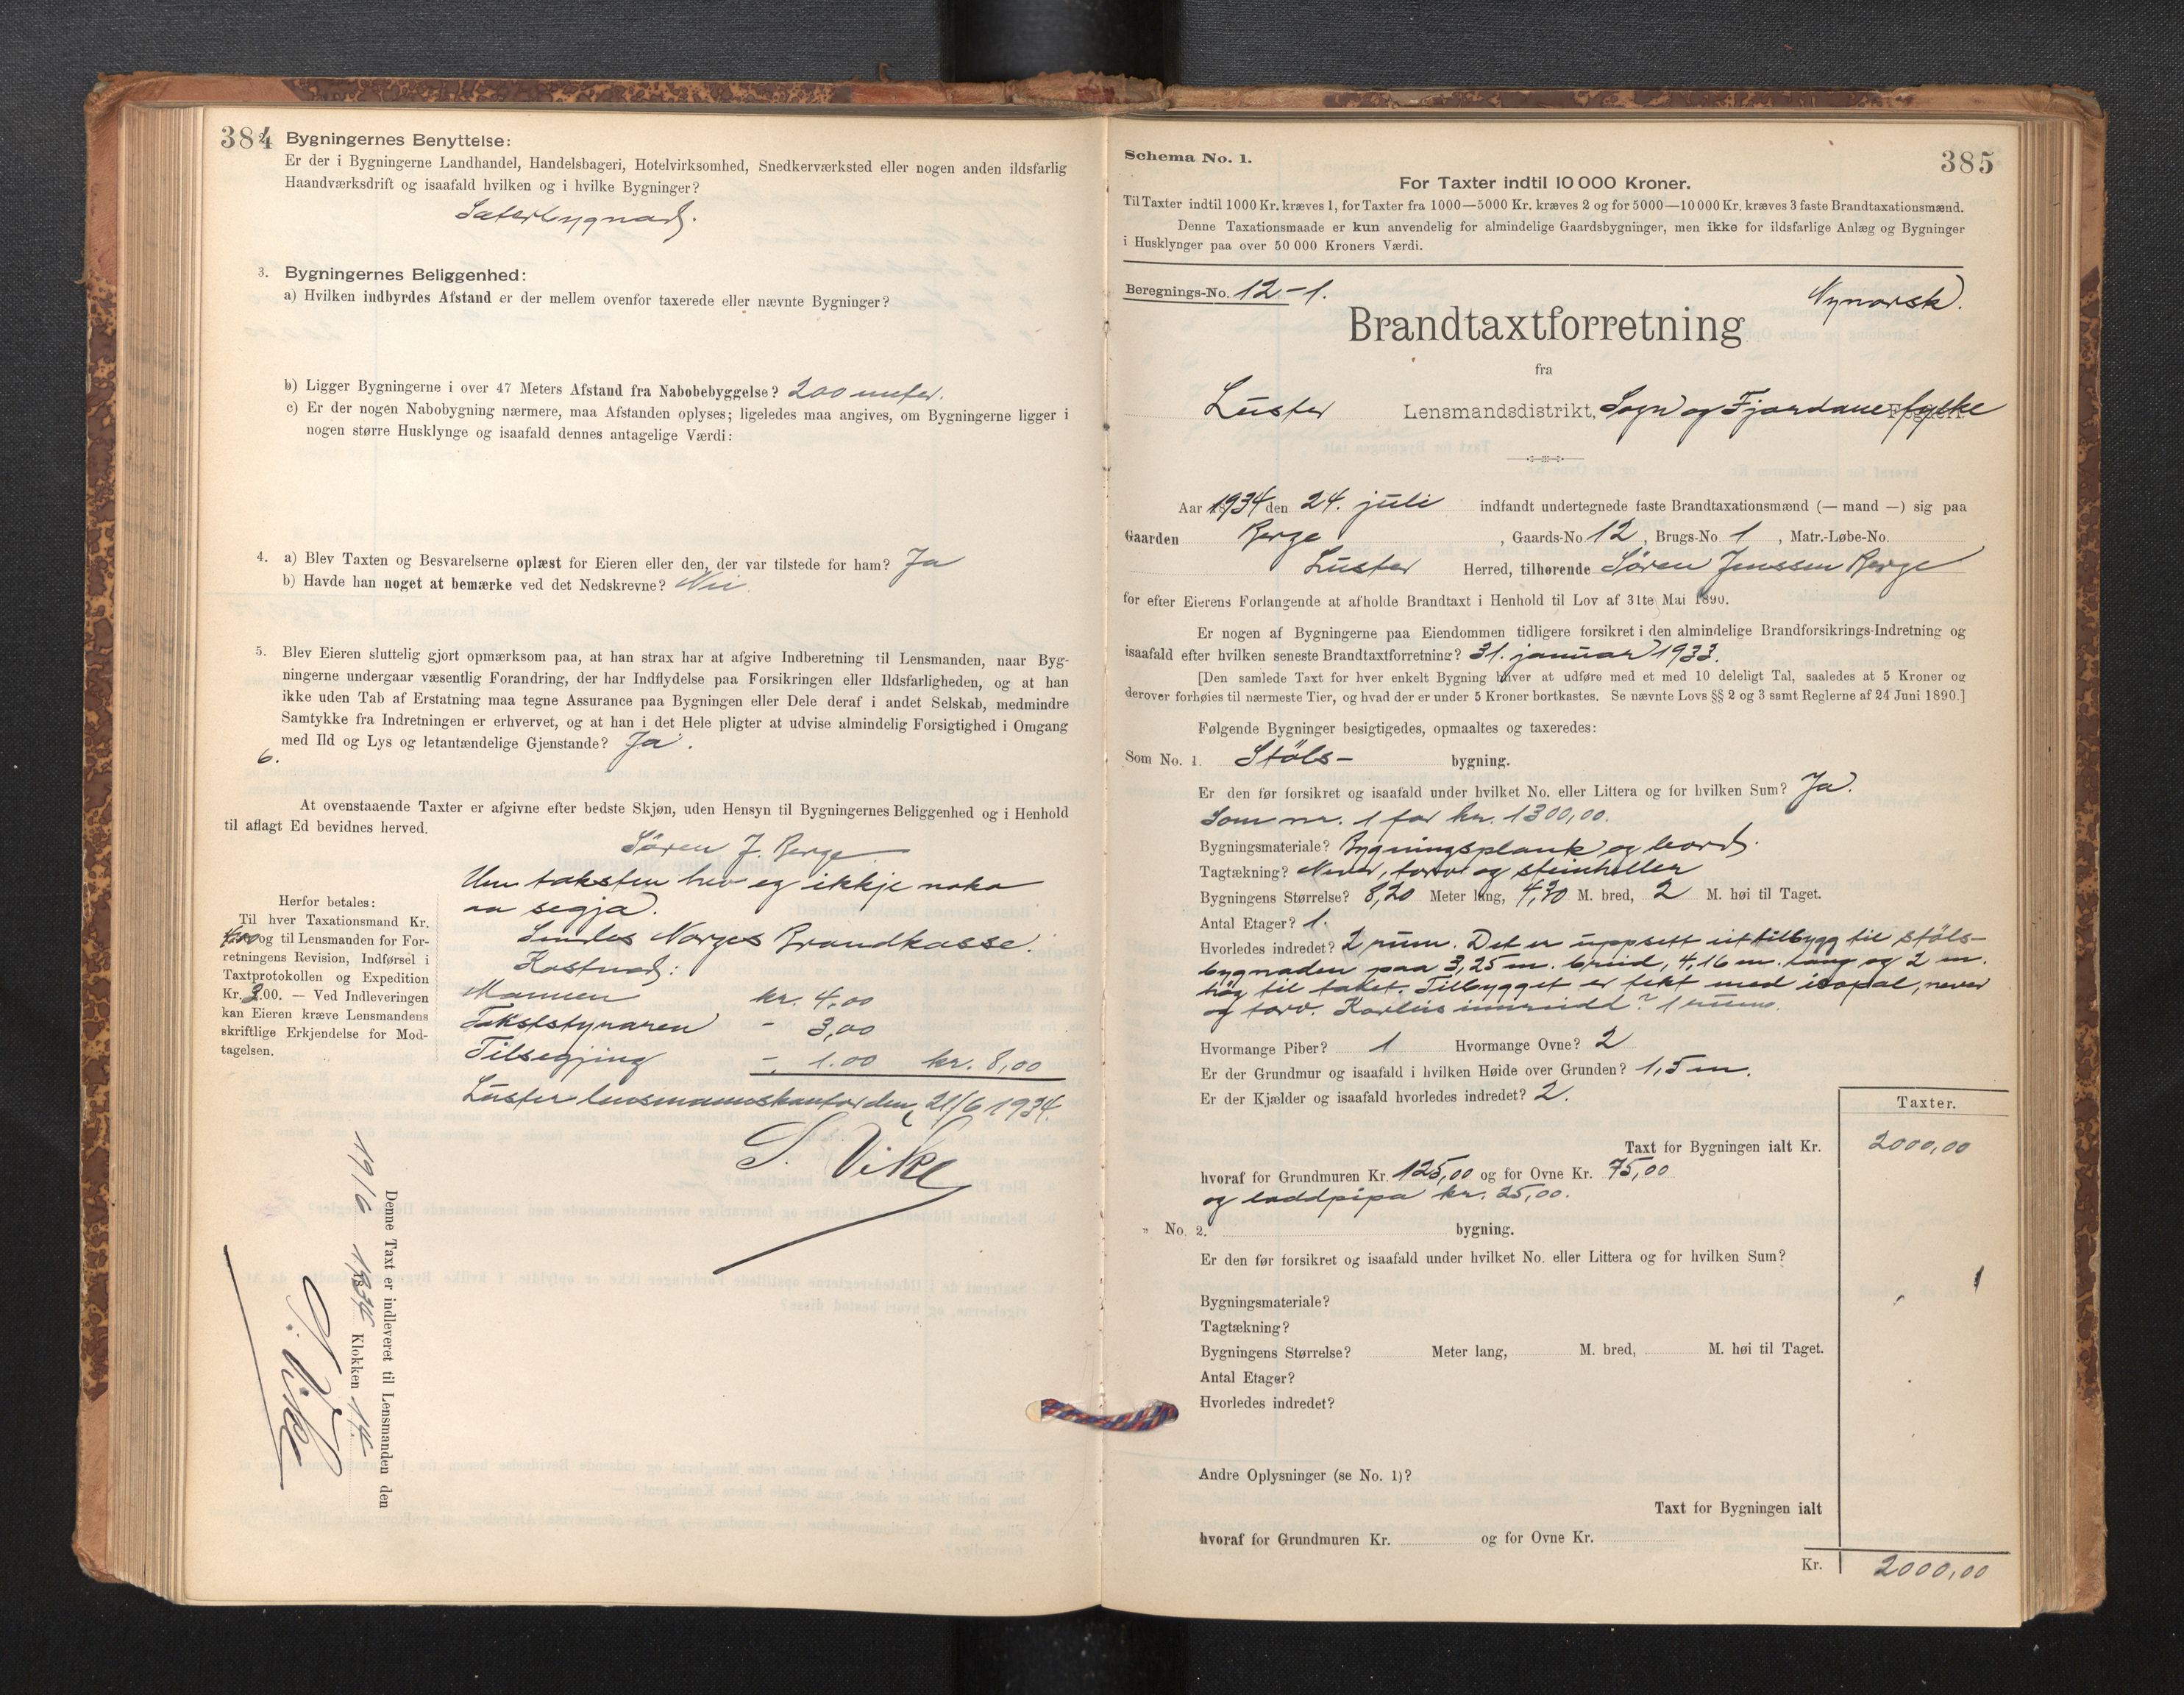 384
Bygningernes Benyttelse:
Er der i Bygningerne Landhandel, Handelsbageri, Hotelvirksomhed, Snedkerværksted eller nogen anden ildsfarlig
Haandværksdrift og isaafald hvilken og i hvilke Bygninger?
Sæterbygnad.
3. Bygningernes Beliggenhed:
a) Hvilken indbyrdes Afstand er der mellem ovenfor taxerede eller nævnte Bygninger?
b) Ligger Bygningerne i over 47 Meters Afstand fra Nabobebyggelse? 200 meter.
c) Er der nogen Nabobygning nærmere, maa Afstanden oplyses; ligeledes maa angives, om Bygningerne ligger i
nogen større Husklynge og isaafald dennes antagelige Værdi:
4. a) Blev Taxten og Besvarelserne oplæst for Eieren eller den, der var tilstede for ham? Ja
b) Havde han noget at bemærke ved det Nedskrevne? Nei.
5. Blev Eieren sluttelig gjort opmærksom paa, at han strax har at afgive Indberetning til Lensmanden, naar Byg-
ningerne undergaar væsentlig Forandring, der har Indflydelse paa Forsikringen eller Ildsfarligheden, og at han
ikke uden Tab af Erstatning maa tegne Assurance paa Bygningen eller Dele deraf i andet Selskab, medmindre
Samtykke fra Indretningen er erhvervet, og at han i det Hele pligter at udvise almindelig Forsigtighed i Omgang
med Ild og Lys og letantændelige Gjenstande? Ja.
6.
At ovenstaaende Taxter er afgivne efter bedste Skjøn, uden Hensyn til Bygningernes Beliggenhed og i Henhold
til aflagt Ed bevidnes herved.
Søren J. Berge
Um taksten hev eg ikkje noko
aa segja.
Sendes Norges Brandkasse.
Kostnad:
Mannen kr. 4,00
Takststyraren - 3,00
Tilsegjing - 1.00 kr. 8,00
Luster lensmannskontor den 21/6 1934.
S. Vike
Herfor betales:
Til hver Taxationsmand Kr.
4,00 og til Lensmanden for For-
retningens Revision, Indførsel i
Taxtprotokollen og Expedition
Kr. 3.00. — Ved Indleveringen
kan Eieren kræve Lensmandens
skriftlige Erkjendelse for Mod-
tagelsen.
Denne Taxt er indleveret til Lensmanden den
19/6 1934 Klokken 14
S. Vike
385
Schema No. 1.
For Taxter indtil 10 000 Kroner.
Til Taxter indtil 1000 Kr. kræves 1, for Taxter fra 1000—5000 Kr. kræves 2 og for 5000—10 000 Kr. kræves 3 faste Brandtaxationsmænd.
Denne Taxationsmaade er kun anvendelig for almindelige Gaardsbygninger, men ikke for ildsfarlige Anlæg og Bygninger
i Husklynger paa over 50 000 Kroners Værdi.
Beregnings-No. 12-1.
Nynorsk.
Brandtaxtforretning
fra
Luster Lensmandsdistrikt, Sogn og Fjordane fylke
Aar 1934 den 24. juli indfandt undertegnede faste Brandtaxationsmænd (— mand —) sig paa
Gaarden Berge, Gaards-No. 12, Brugs-No. 1, Matr.-Løbe-No.
Luster Herred, tilhørende Søren Jenssen Berge
for efter Eierens Forlangende at afholde Brandtaxt i Henhold til Lov af 31te Mai 1890.
Er nogen af Bygningerne paa Eiendommen tidligere forsikret i den almindelige Brandforsikrings-Indretning og
isaafald efter hvilken seneste Brandtaxtforretning? 31. januar 1933.
[Den samlede Taxt for hver enkelt Bygning bliver at udføre med et med 10 deleligt Tal, saaledes at 5 Kroner og
derover forhøies til nærmeste Tier, og hvad der er under 5 Kroner bortkastes. Se nævnte Lovs §§ 2 og 3 samt Reglerne af 24 Juni 1890.]
Følgende Bygninger besigtigedes, opmaaltes og taxeredes:
Som No. 1. Stöls- bygning.
Er den før forsikret og isaafald under hvilket No. eller Littera og for hvilken Sum? Ja.
Som nr. 1 for kr. 1300,00.
Bygningsmateriale? Bygningsplank og bord.
Tagtækning? Never, torv og steinheller
Bygningens Størrelse? 8,20 Meter lang, 4,30 M. bred, 2 M. høi til Taget.
Antal Etager? 1.
Hvorledes indredet? 2 rum. Det er uppsett eit tilbygg til stöls-
bygnaden paa 3,25 m. breid, 4,16 m. lang og 2 m.
høg til taket. Tilbygget er tekt med isopal, never
og torv. Korleis innreidd? 1 rum.
Hvormange Piber? 1 Hvormange Ovne? 2
Er der Grundmur og isaafald i hvilken Høide over Grunden? 1,5 m.
Er der Kjælder og isaafald hvorledes indredet? 2.
Taxter.
Taxt for Bygningen ialt Kr. 2000,00
hvoraf for Grundmuren Kr. 125,00 og for Ovne Kr. 75,00
og laddpipa kr. 25,00.
" No. 2. bygning.
Er den før forsikret og isaafald under hvilket No. eller Littera og for hvilken Sum?
Bygningsmateriale?
Tagtækning?
Bygningens Størrelse? Meter lang, M. bred, M. høi til Taget.
Antal Etager?
Hvorledes indredet?
Andre Oplysninger (se No. 1)?
Taxt for Bygningen ialt
hvoraf for Grundmuren Kr. og for Ovne Kr.
Kr. 2000,00